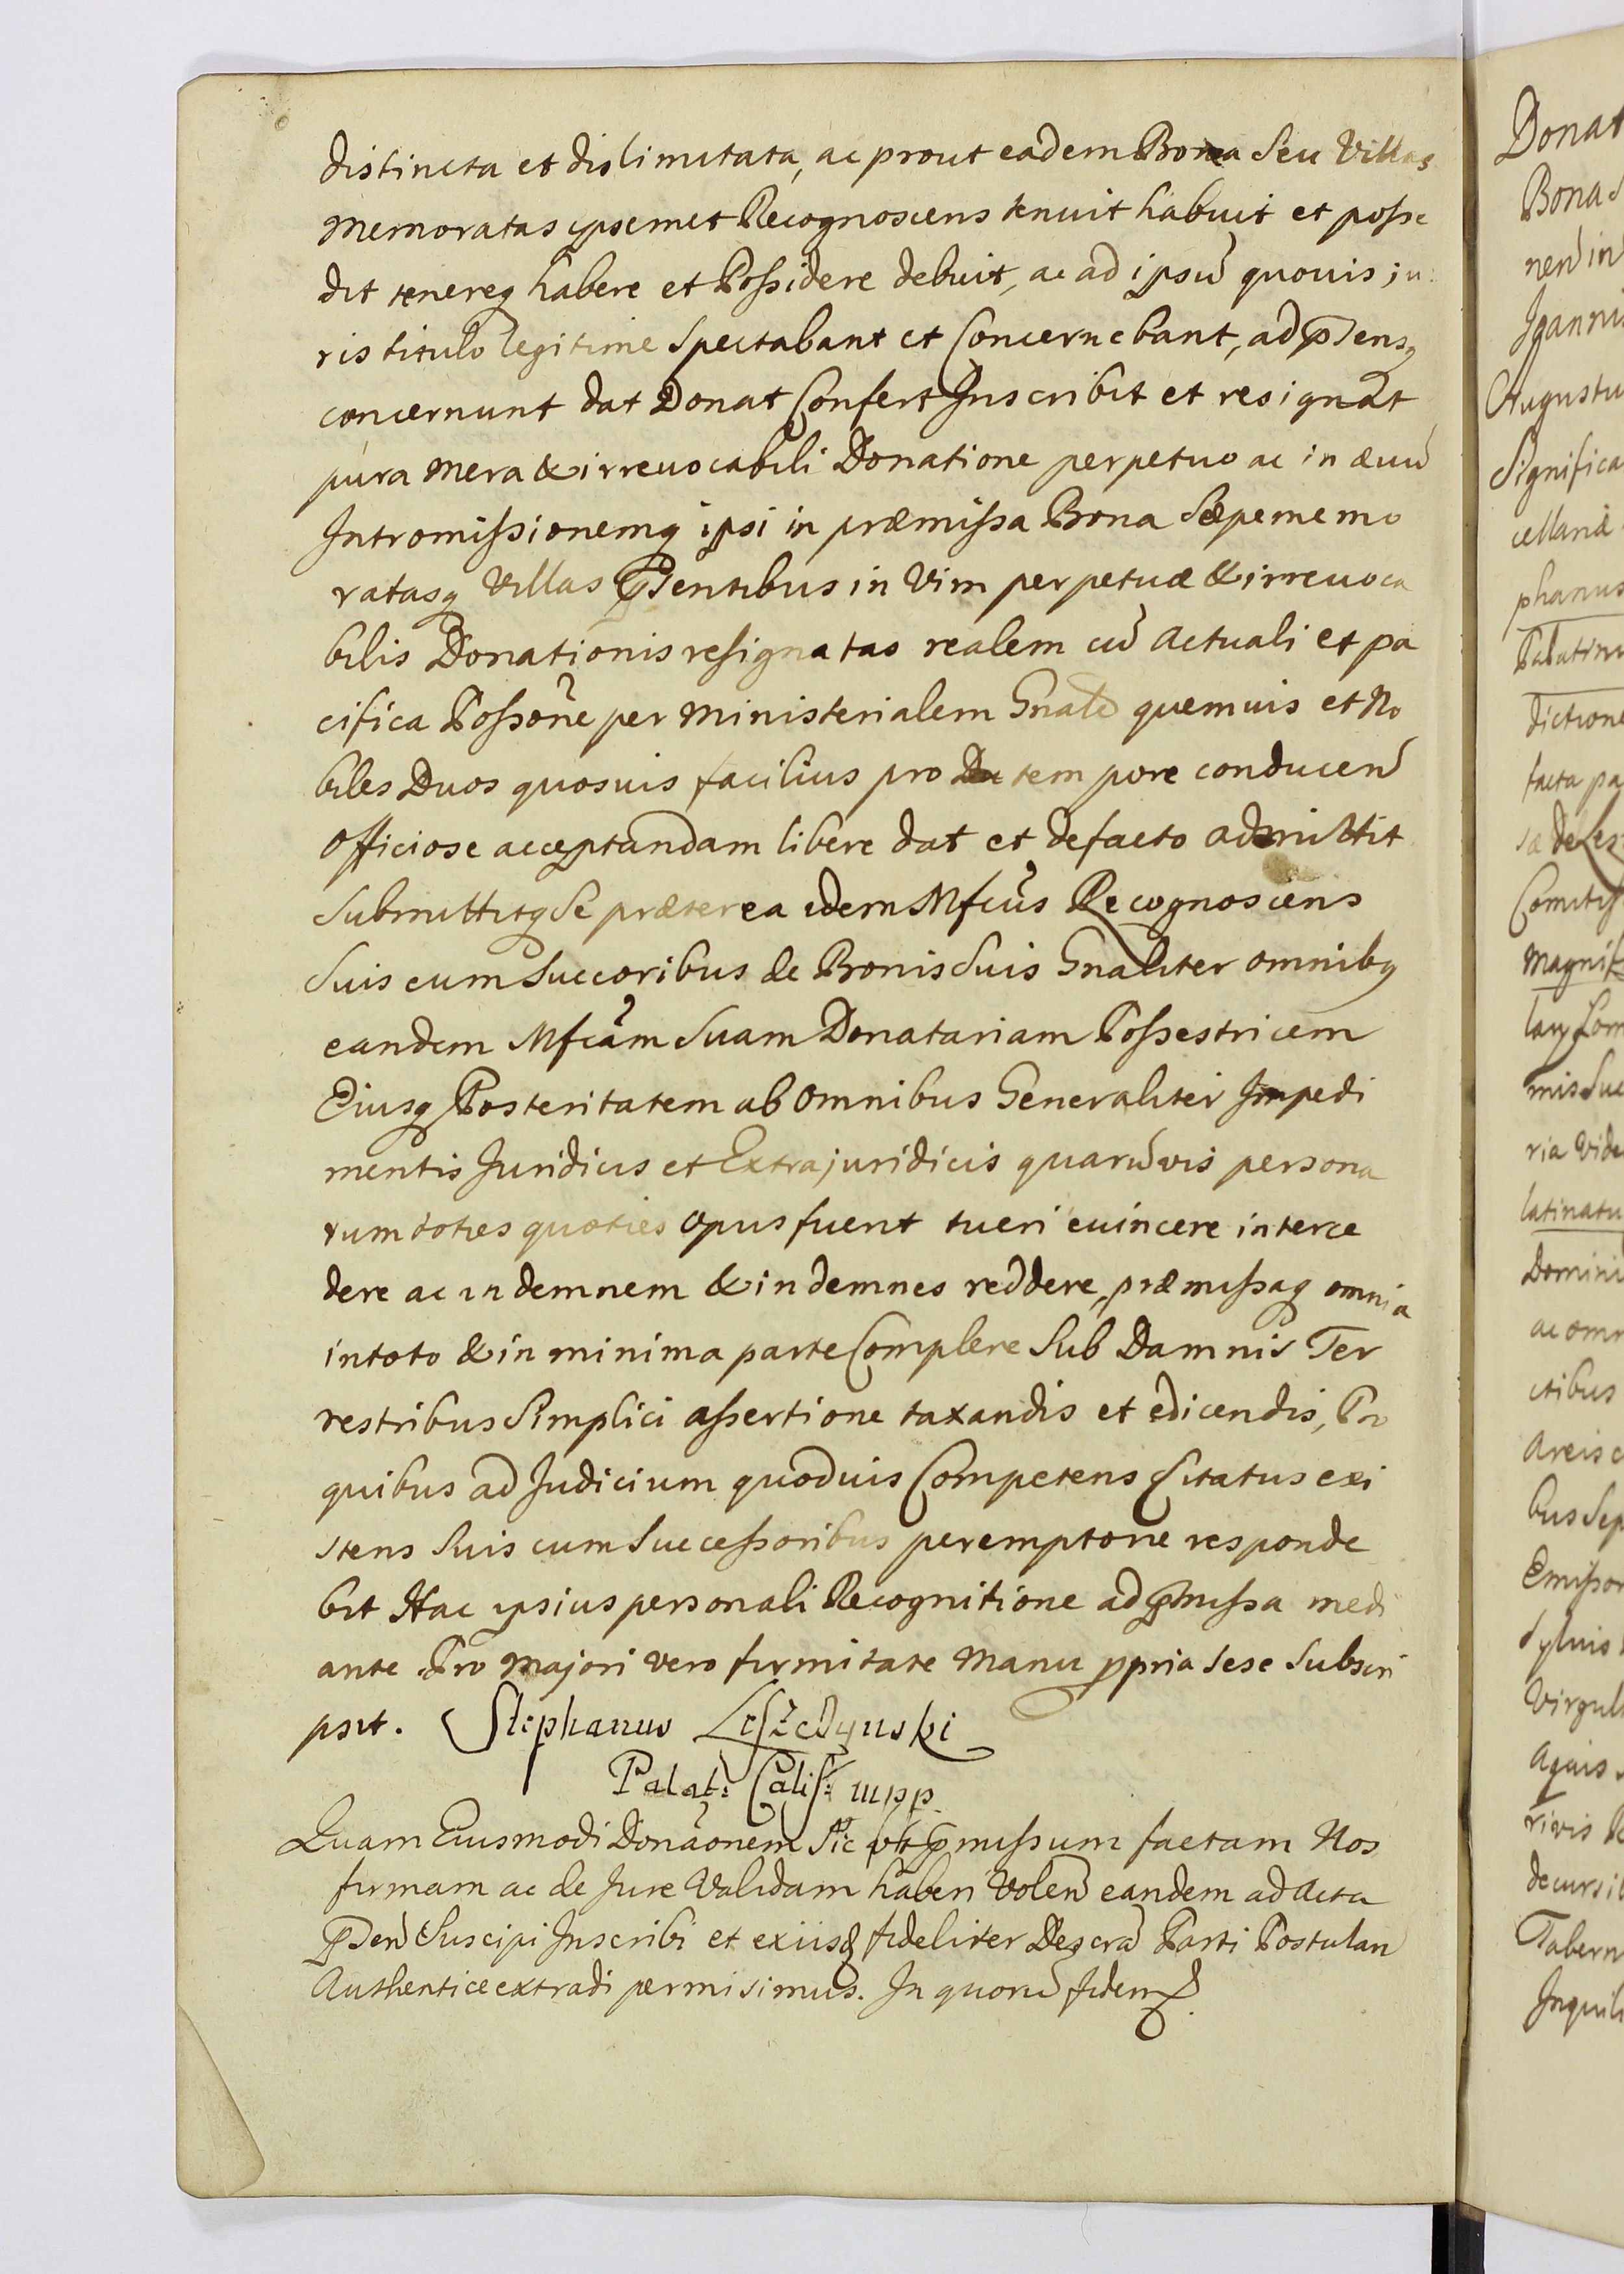 distincta et dislimitata, ac prout eadem Bona Seu Villas
Memoratas ipsemet Recognoscens tenuit habuit et posse
dit tenereq habere et Possidere debuit, ac ad ipsū quovis ju
ris titulo legitime Spectabant et Concernebant, ad p̄sensq
concernunt dat Donat Confert Inscribit et resignat
pura Mera & irrevocabili Donatione perpetuo ac in ævū
Intromissionemq ipsi in præmissa Bona Sæpememo
ratasq Villas p̄sentibus in Vim perpetuæ & irrevoca
bilis Donationis resignatas realem cū Actuali et pa
cifica Possōne per Ministerialem Gnalē quemvis et No
biles Duos quosvis facilius pro tempore conducen̄
Officiose acceptandam libere dat et defacto admittit
Submittitq Se præterea idem Mfcus Recognoscens
Suis cum Succoribus de Bonis Suis Gnaliter omnibq
eandem Mfcam Suam Donatariam Possestricem
Eiusq Posteritatem ab Omnibus Generaliter Impedi
mentis Juridicis et Extrajuridicis quarūvis persona
rum toties quoties Opus fuerit tueri evincere interce
dere ac indemnem & indemnes reddere, præmissaq omnia
in toto & in minima parte Complere Sub Damnis Ter
restribus Simplici assertione taxandis et edicendis, Pro
quibus ad Judicium quodvis Competens Citatus exi
stens Suis cum Successoribus peremptorie responde
bit Hac ipsius personali Recognitione ad p̄missa medi
ante Pro Majori vero firmitate Manu ppria Sese Subscri
psit. Stephanus Leszczynski
Palat: Calis: mpp
Quam Eiusmodi Donāonem Sic ut p̄missum factam Nos
firmam ac de Jure Validam haberi Volen̄ eandem ad Acta
p̄sen̄ Suscipi Inscribi et ex iisq fideliter Descrā Parti Postulan̄
Authentice extradi permisimus. In quorū fidem
Donat
Bona S
nen̄ in
Joannis
Augustu
Significa
cellariæ
phanus
Palatinu
dictione
facta pa
sæ de Les
Comitiss
Magnif
mis Suc
ria Vide
latinatu
Domini
ac omn
ctibus
Areis c
bus Sep
Emissor
Sylvis
Virgult
Aquis
rivis
decursib
Tabern
Inquili